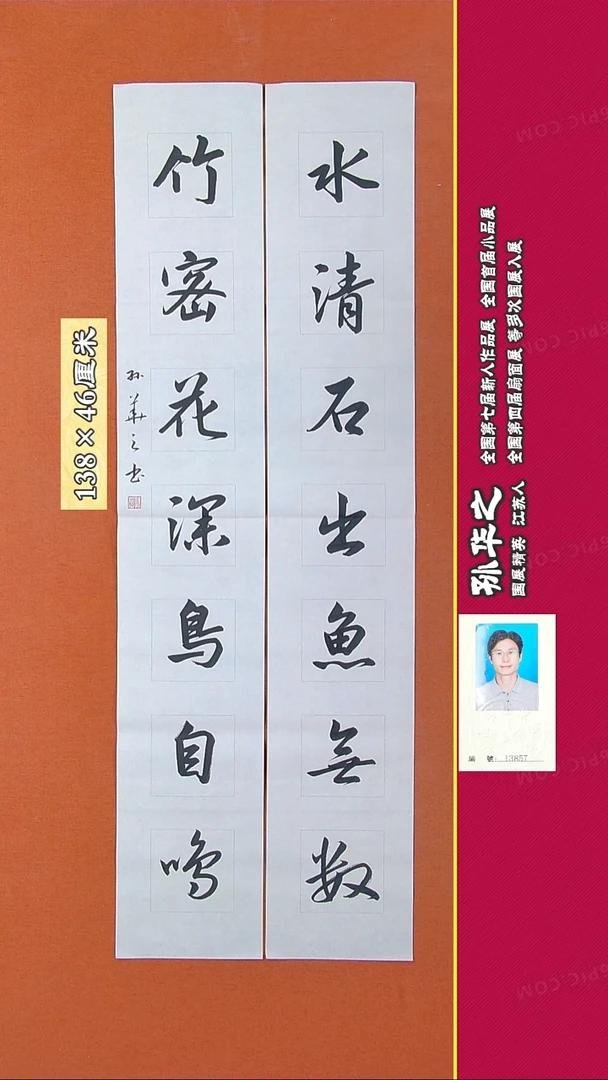 水清石出魚無数
竹密花深鳥自鳴
孙華之书
138×46厘米
孙华之
国展精英 江苏人
全国第七届新人作品展 全国首届小品展
全国第四届扇面展 等多次国展入展
編 號: 13857